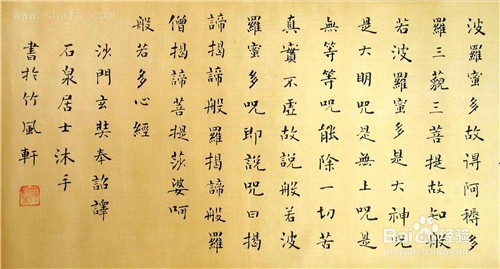 波羅蜜多故得阿耨多
羅三藐三菩提故知般
若波羅蜜多是大神咒
是大明咒是無上咒是
無等等咒能除一切苦
真實不虛故說般若波
羅蜜多咒即說咒曰揭
諦揭諦般羅揭諦般羅
僧揭諦菩提莎婆呵
般若多心經
沙門玄奘奉詔譯
石泉居士沐手
書於竹風軒
Baidu经验
jingyan.baidu.com